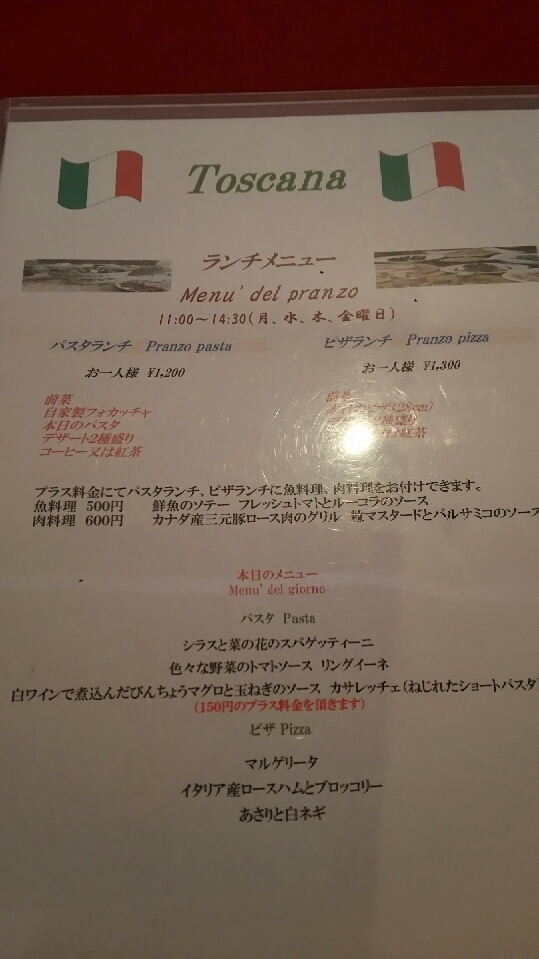 Toscana
ランチメニュー
Menu' del pranzo
11:00～14:30(月、水、木、金曜日)
パスタランチ Pranzo pasta
お一人様 ¥1,200
前菜
自家製フォカッチャ
本日のパスタ
デザート2種盛り
コーヒー又は紅茶
ピザランチ Pranzo pizza
お一人様 ¥1,300
前菜
(28cm)
盛り
又は紅茶
プラス料金にてパスタランチ、ピザランチに魚料理、肉料理をお付けできます。
魚料理 500円 鮮魚のソテー フレッシュトマトとルーコラのソース
肉料理 600円 カナダ産三元豚ロース肉のグリル 粒マスタードとバルサミコのソース
本日のメニュー
Menu' del giorno
パスタ Pasta
シラスと菜の花のスパゲッティーニ
色々な野菜のトマトソース リングイーネ
白ワインで煮込んだびんちょうマグロと玉ねぎのソース カサレッチェ(ねじれたショートパスタ)
(150円のプラス料金を頂きます)
ピザ Pizza
マルゲリータ
イタリア産ロースハムとブロッコリー
あさりと白ネギ